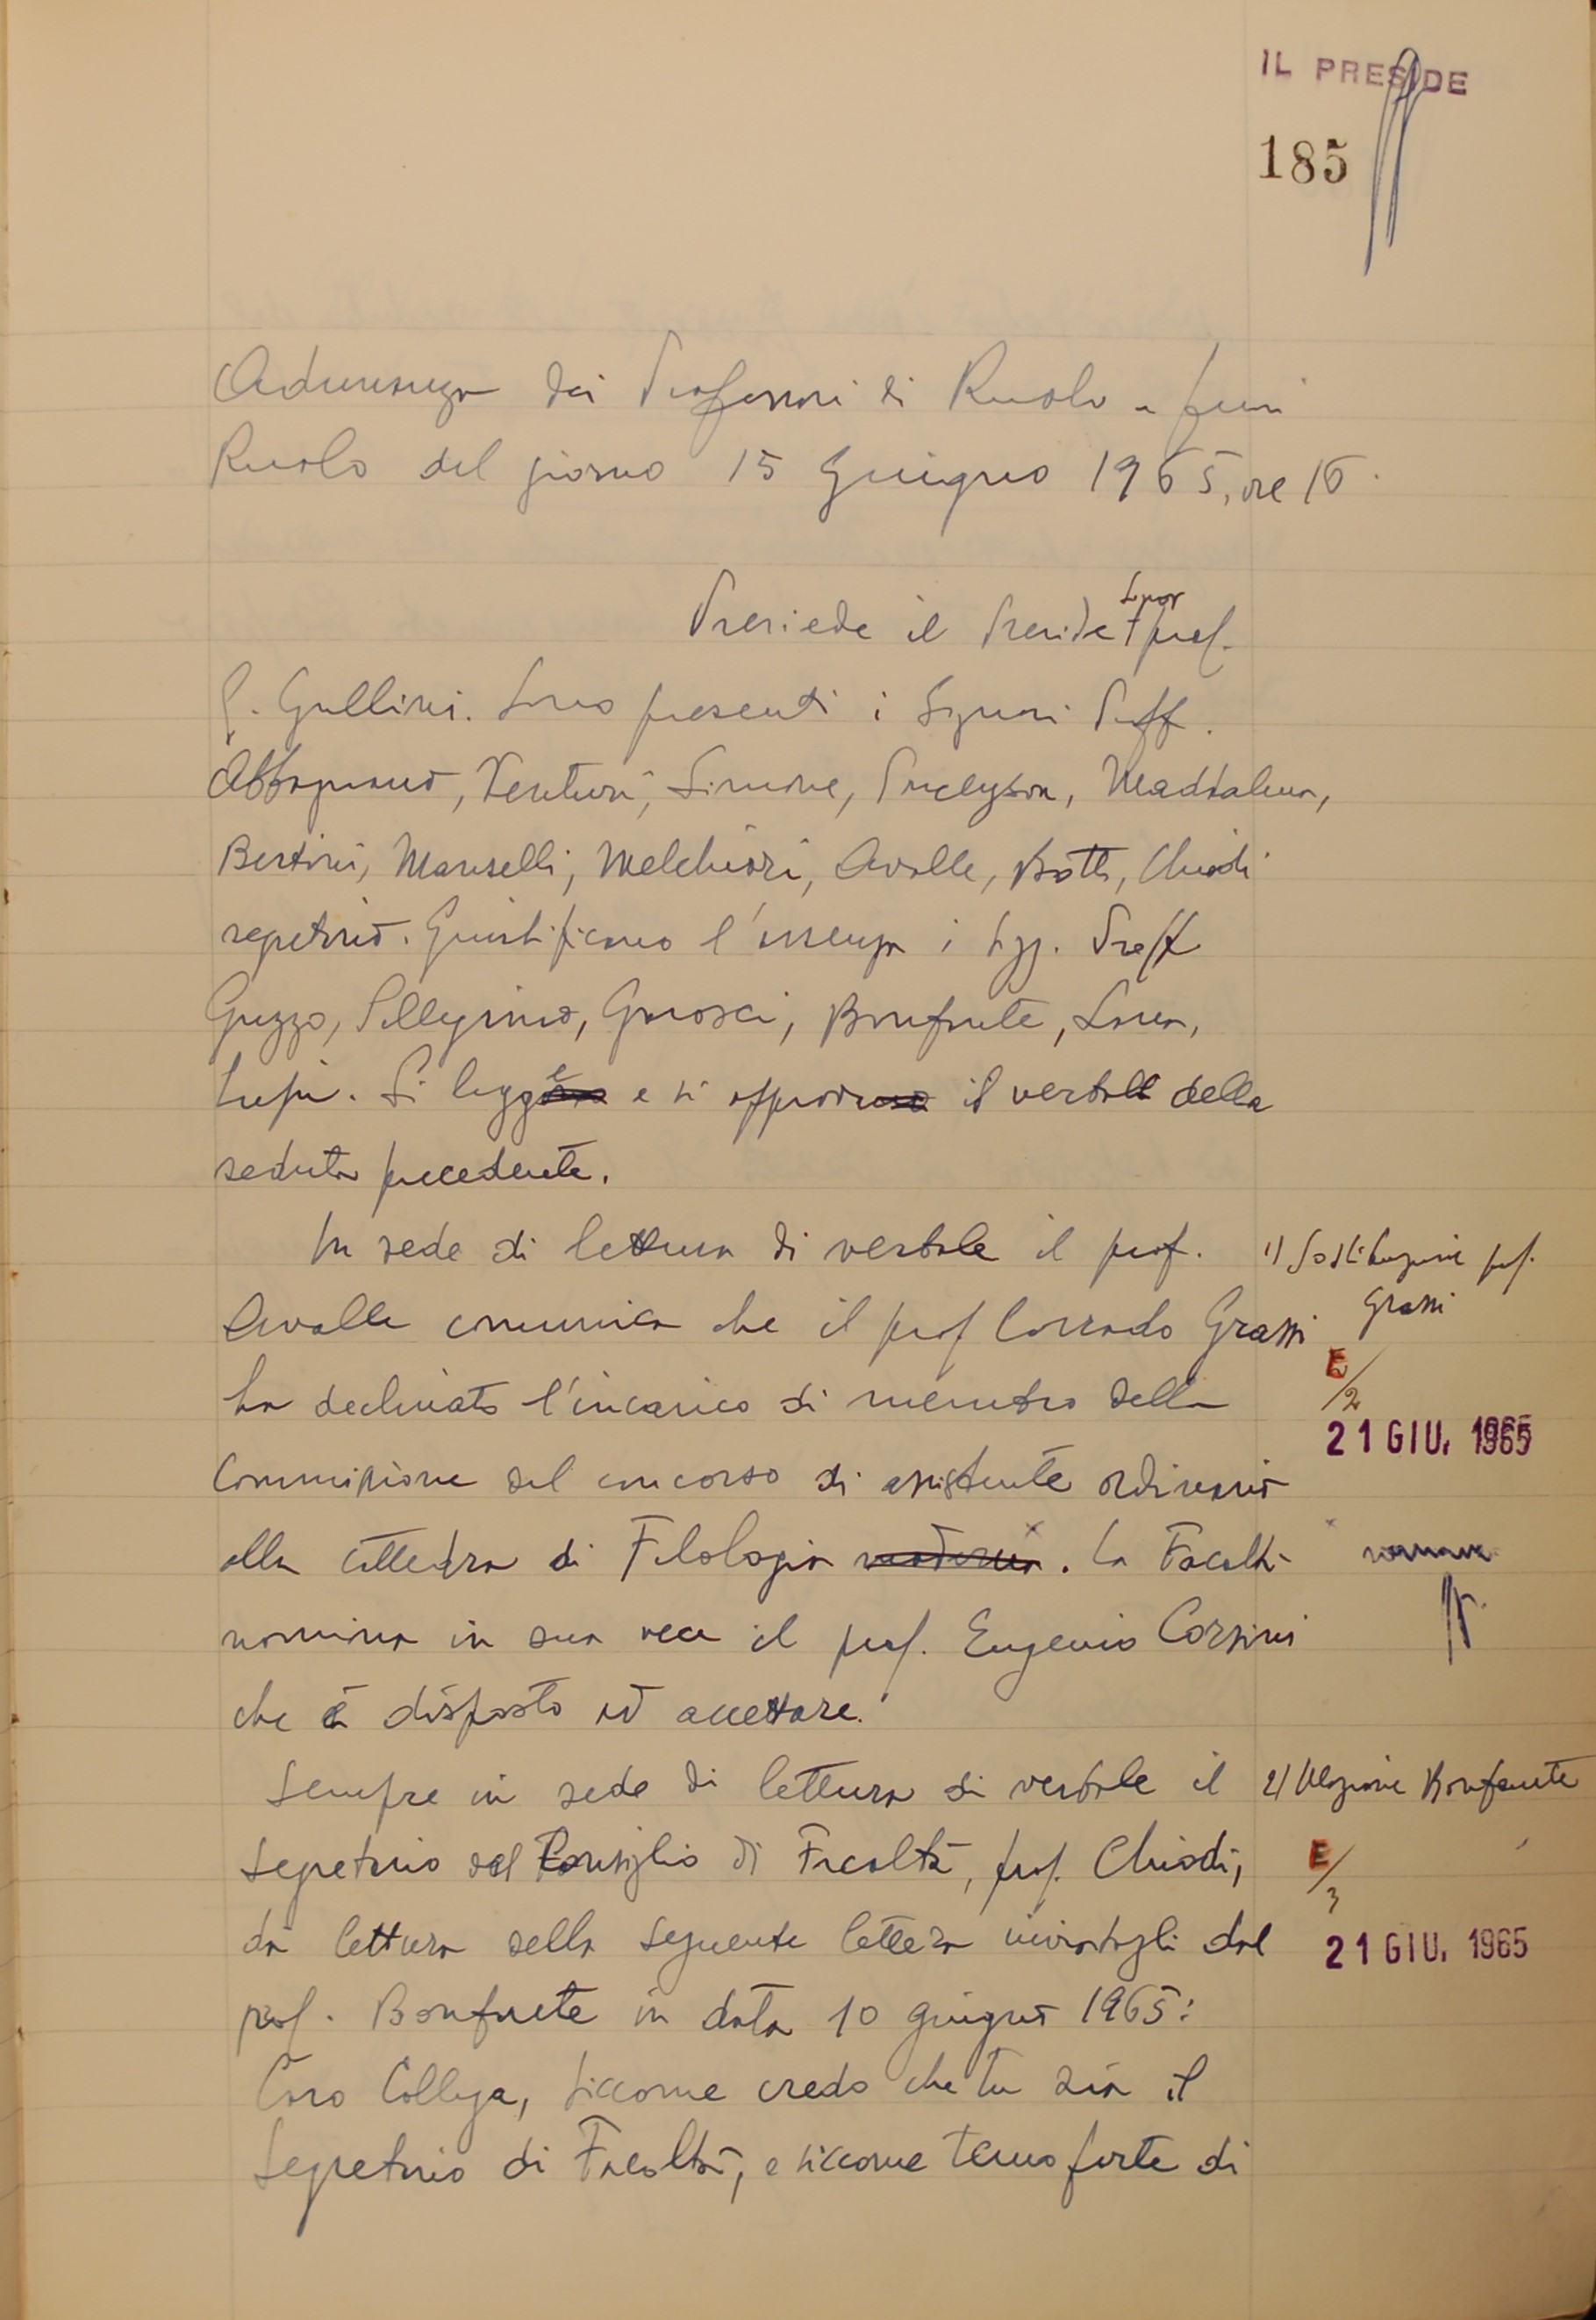 IL PRESIDE
185
Adunanza dei Professori di Ruolo e fuori
Ruolo del giorno 15 Giugno 1965, ore 16.
Presiede il Preside prof.
G. Gullini. Sono presenti i Signori Proff.
Abbagnano, Venturi, Simone, Maddalena,
Bertini, Manselli, Melchiori, Avalle, Botto, Chiodi
segretario. Giustificano l'assenza i Sigg. Proff
Guzzo, Pellegrino, Garosci, Bonfante,
Lupi. Si legge e si approva il verbale della
seduta precedente.
In sede di lettura di verbale il prof.
1) Sostituzione prof.
Grassi
Avalle comunica che il prof Corrado Grassi
ha declinato l'incarico di membro della
E/2
21 GIU. 1965
Commissione del concorso di assistente ordinario
alla cattedra di Filologia moderna. La Facoltà
romanza
nomina in sua vece il prof. Eugenio Corsini
che è disposto ad accettare.
Sempre in sede di lettura di verbale il
2) Mozione Bonfante
Segretario del Consiglio di Facoltà, prof. Chiodi,
E/3
dà lettura della seguente lettera inviatagli dal
21 GIU. 1965
prof. Bonfante in data 10 giugno 1965:
Caro Collega, siccome credo che tu sia il
Segretario di Facoltà, e siccome temo forte di